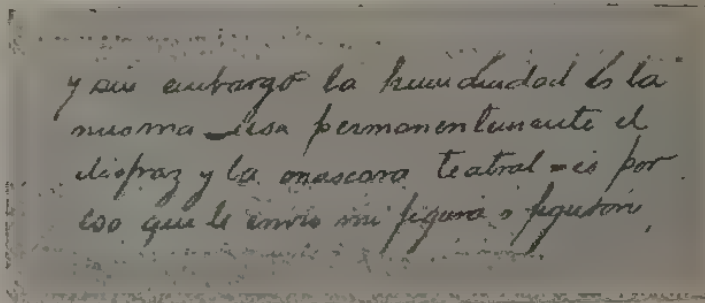 y sin embargo la humanidad es la
misma – usa permanentemente el
disfraz y la mascara teatral – es por
eso que le envio mi figura o figuron,